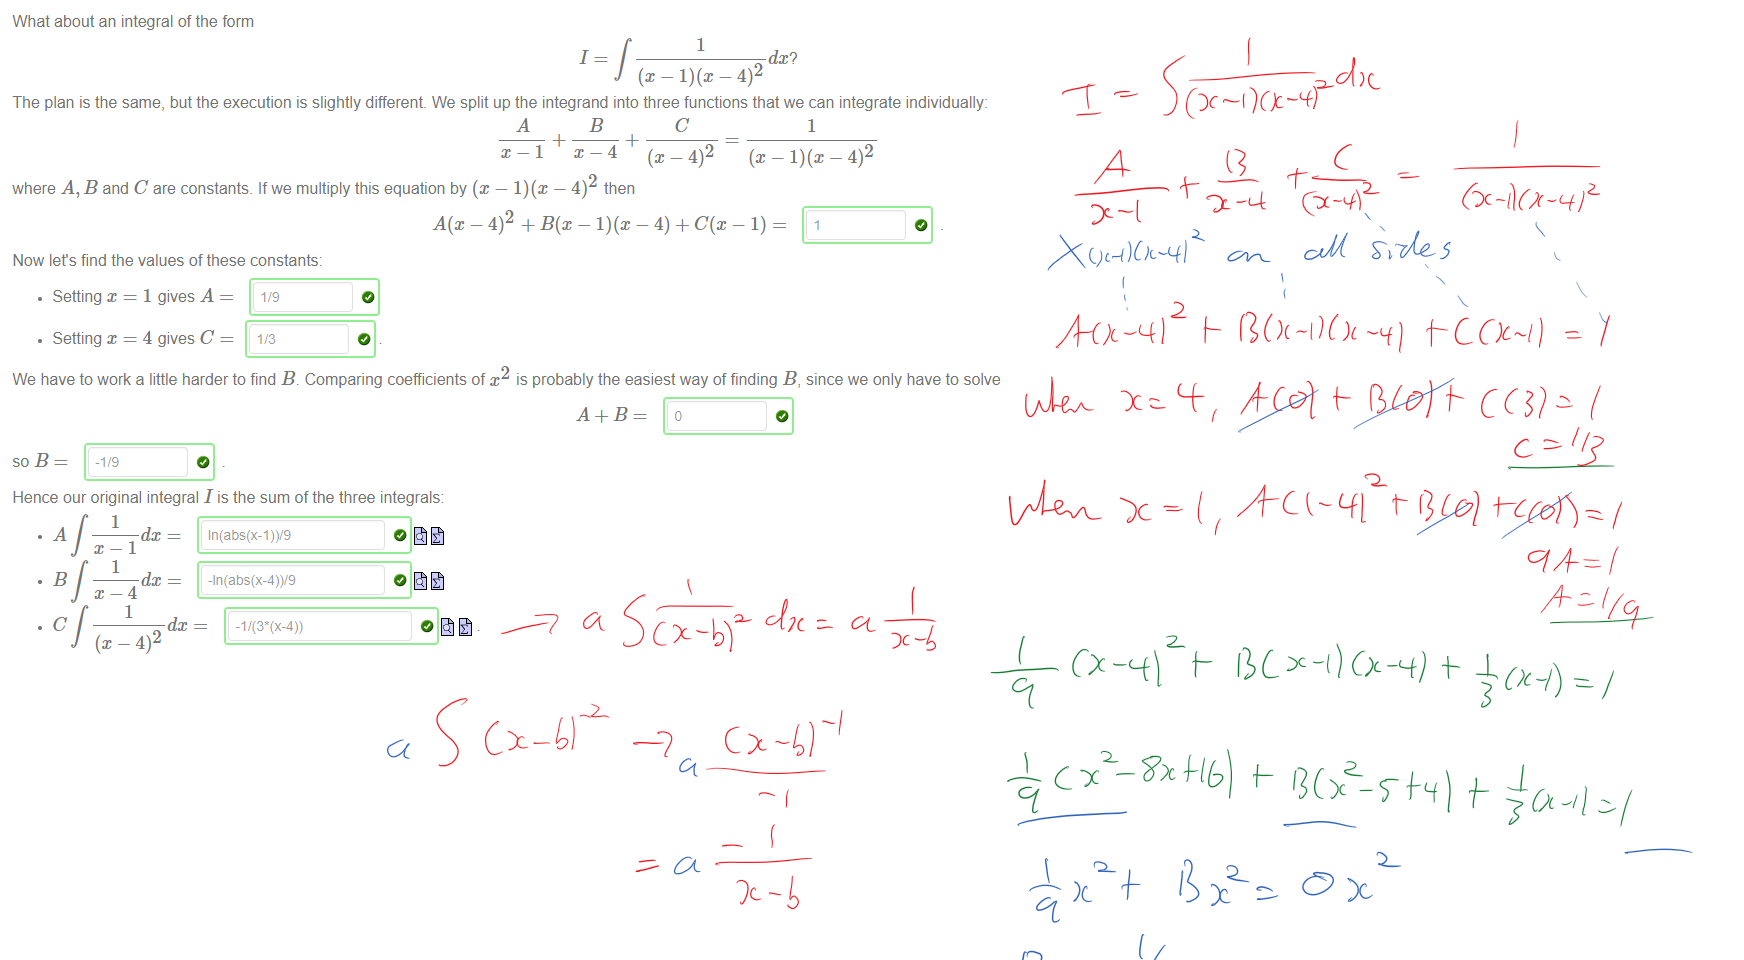 What about an integral of the form
I = ∫ 1/((x − 1)(x − 4)²) dx?
The plan is the same, but the execution is slightly different. We split up the integrand into three functions that we can integrate individually:
A/(x − 1) + B/(x − 4) + C/(x − 4)² = 1/((x − 1)(x − 4)²)
where A, B and C are constants. If we multiply this equation by (x − 1)(x − 4)² then
A(x − 4)² + B(x − 1)(x − 4) + C(x − 1) = 1 .
Now let's find the values of these constants:
• Setting x = 1 gives A = 1/9
• Setting x = 4 gives C = 1/3 .
We have to work a little harder to find B. Comparing coefficients of x² is probably the easiest way of finding B, since we only have to solve
A + B = 0
so B = -1/9 .
Hence our original integral I is the sum of the three integrals:
• A ∫ 1/(x − 1) dx = ln(abs(x-1))/9
• B ∫ 1/(x − 4) dx = -ln(abs(x-4))/9
• C ∫ 1/(x − 4)² dx = -1/(3*(x-4)) .
→ a ∫ 1/(x-b)² dx = a 1/(x-b)
a ∫ (x-b)⁻² → a (x-b)⁻¹/-1
= a -1/(x-b)
I = ∫ 1/((x-1)(x-4)²) dx
A/(x-1) + B/(x-4) + C/(x-4)² = 1/((x-1)(x-4)²)
X(x-1)(x-4)² on all sides
A(x-4)² + B(x-1)(x-4) + C(x-1) = 1
when x=4, A(0) + B(0) + C(3) = 1
C = 1/3
when x=1, A(1-4)² + B(0) + C(0) = 1
9A=1
A=1/9
1/9 (x-4)² + B(x-1)(x-4) + 1/3 (x-1) = 1
1/9 (x²-8x+16) + B(x²-5+4) + 1/3 (x-1) = 1
1/9 x² + Bx² = 0x²